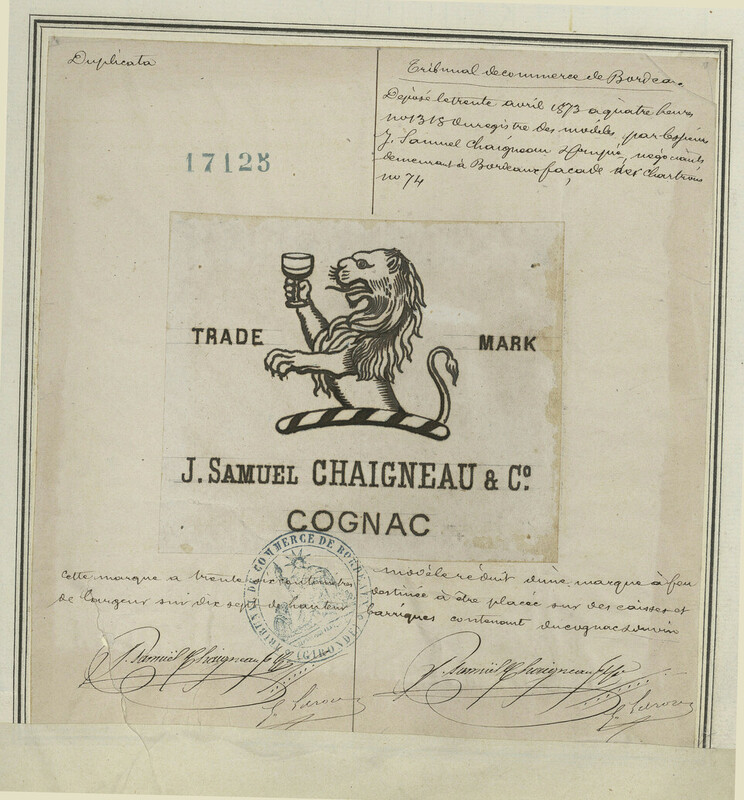 Duplicata
17125
Tribunal de commerce de Bordea.
Déposé le trente avril 1873 a quatre heures
no 1318 du registre des modèles, par
J. Samuel Chaigneau négociants
demeurant à Bordeaux façade des Chartrons
no 74
TRADE MARK
J. SAMUEL CHAIGNEAU & Co.
COGNAC
TRIBUNAL DE COMMERCE DE BORDEAUX
(GIRONDE)
Cette marque a trente six centimètres
de largeur sur dix sept de hauteur
modèle réduit d'une marque à feu
destinée à être placée sur des caisses et
barriques contenant du cognac
J. Samuel Chaigneau & Co
J. Samuel Chaigneau & Co